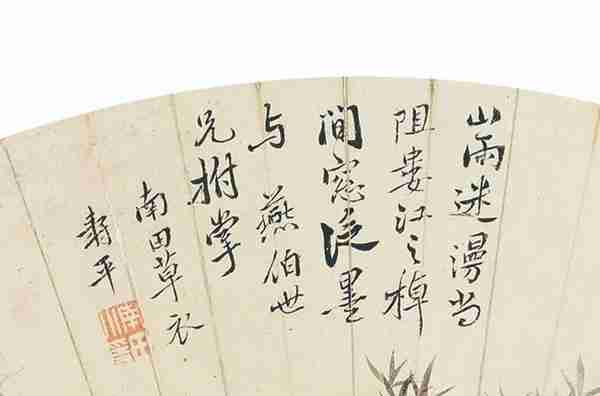 山雨迷漫当
阻娄江之棹
間窓墨
与燕伯世
兄拊掌
南田草衣
壽平